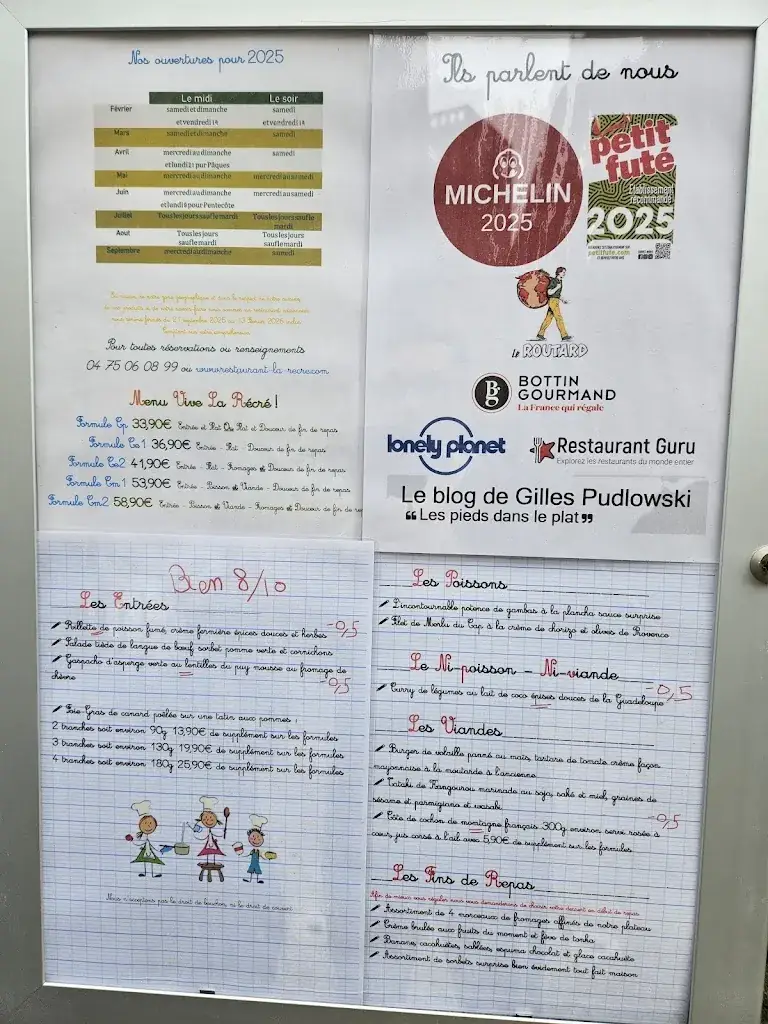 Nos ouvertures pour 2025
Le midi Le soir
Février samedi et dimanche samedi
et vendredi 14 et vendredi 14
Mars samedi et dimanche samedi
Avril mercredi au dimanche samedi
et lundi 21 pur Pâques
Mai mercredi au dimanche mercredi au samedi
Juin mercredi au dimanche mercredi au samedi
et lundi 9 pour Pentecôte
Juillet Tous les jours sauf le mardi Tous les jours sauf le
mardi
Aout Tous les jours Tous les jours
sauf le mardi sauf le mardi
Septembre mercredi au dimanche samedi
Pour toutes réservations ou renseignements
04 75 06 08 99 ou www.restaurant-la-recre.com
Menu Vive La Récré !
Formule Cp 33,90€ Entrée et Plat Ou Plat et Douceur de fin de repas
Formule Ce1 36,90€ Entrée - Plat - Douceur de fin de repas
Formule Ce2 41,90€ Entrée - Plat - Fromages et Douceur de fin de repas
Formule Cm1 53,90€ Entrée - Poisson et Viande - Douceur de fin de repas
Formule Cm2 58,90€ Entrée - Poisson et Viande - Fromages et Douceur de fin de re
Ils parlent de nous
MICHELIN
2025
petit
futé
Etablissement
recommandé
2025
petitfute.com
le ROUTARD
Bg
BOTTIN
GOURMAND
La France qui régale
lonely planet
Restaurant Guru
Explorez les restaurants du monde entier
Le blog de Gilles Pudlowski
“Les pieds dans le plat”
Bien 8/10
Les Entrées
Rillette de poisson fumé, crème fermière épices douces et herbes -0,5
Salade tiède de langue de bœuf sorbet pomme verte et cornichons
Gaspacho d'asperge verte au lentilles du puy mousse au fromage de
chèvre -0,5
Foie Gras de canard poêlée sur une tatin aux pommes :
2 tranches soit environ 90g 13,90€ de supplément sur les formules
3 tranches soit environ 130g 19,90€ de supplément sur les formules
4 tranches soit environ 180g 25,90€ de supplément sur les formules
Nous n'acceptons pas le droit de bouchon, ni le droit de couvert
Les Poissons
L'incontournable potence de gambas à la plancha sauce surprise
Filet de Merlu du Cap à la crème de chorizo et olives de Provence
Le Ni-poisson - Ni-viande
Curry de légumes au lait de coco épises douces de la Guadeloupe -0,5
Les Viandes
Burger de volaille panné au maïs, tartare de tomate crème façon
mayonnaise à la moutarde à l'ancienne
Tataki de Kangourou marinade au soja, saké et miel, graines de
sésame et parmigiana et wasabi
Côte de cochon de momtagne français 300g environ servi rosée à -0,5
cœur, jus corsé à l'ail avec 5,90€ de supplément sur les formules
Les Fins de Repas
Afin de mieux vous régaler nous vous demanderons de choisir votre dessert en début de repas
Assortiment de 4 morceaux de fromages affinés de notre plateau
Crème brulée aux fruits du moment et fève de tonka
Banane, cacahuètes, sablées, espuma chocolat et glace cacahuète
Assortiment de sorbets surprise bien évidement tout fait maison